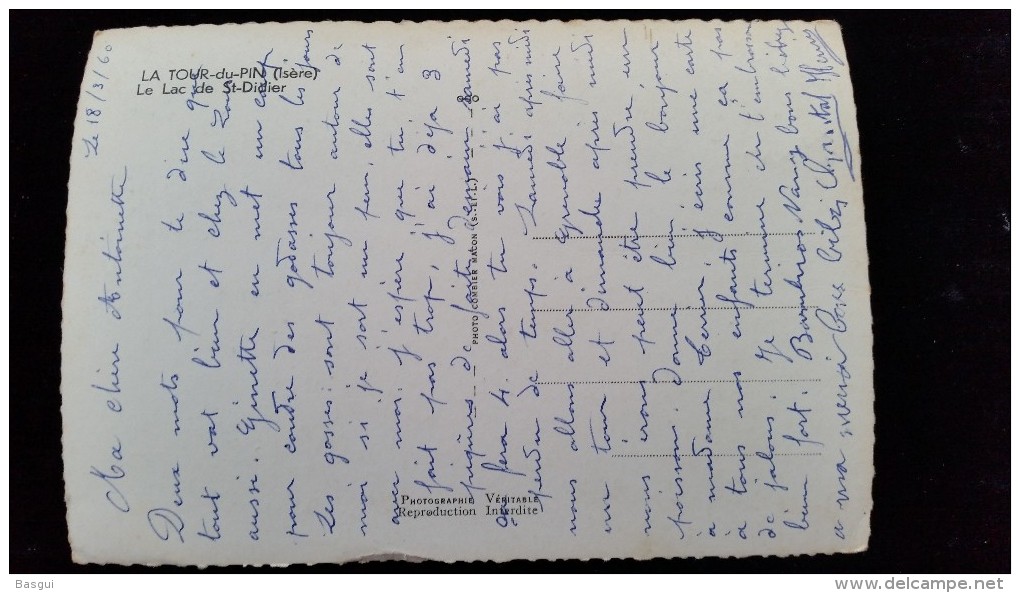 LA TOUR-du-PIN (Isère)
Le Lac de St-Didier
Le 18/3/60
Ma chère Antoinette
Deux mots pour te dire que
tout vat bien et chez le
aussi. Ginette en met un coup
pour coudre des godasses tous les jours
Les gosses sont toujour autour de
moi si je sort un peu, elles sont
avec moi. j'espère que tu t'en
fait pas trop, j'ai déja 3
piqûres de fait, Demain samedi
ça fera 4. alors tu vois j'ai pas
perdu de temps. Samedi après midi
nous allons aller à Grenoble faire
un tour et dimanche après midi
nous irons peut être prendre un
poisson. donne bien le bonjour
à madame j'écris une carte
a tous nos enfants comme ça pas
de jalous. Je termine en t'embrassant
bien fort. Nany bons bibis
PHOTO COMBIER MACON (S.-et-L.)
PHOTOGRAPHIE VÉRITABLE
Reproduction Interdite
Basgui
www.delcampe.net